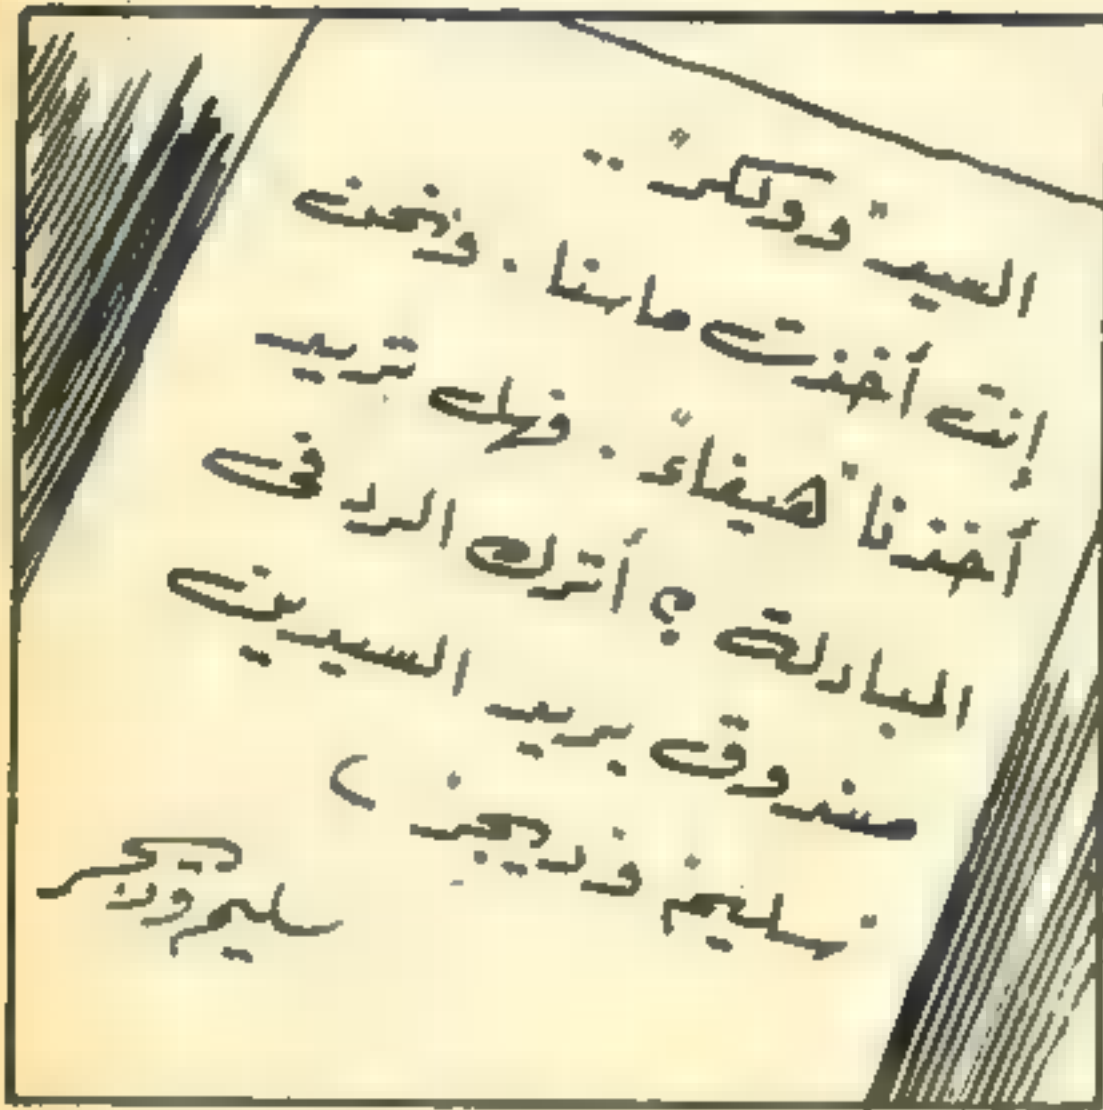 السيد "وولكر" ..
إنت أخذت ماسنا . ونحن
أخذنا "هيفاء" . فهل تريد
المبادلة ؟ أترك الرد في
صندوق بريد السيدين
سليم و ديجز
سليم وديجز